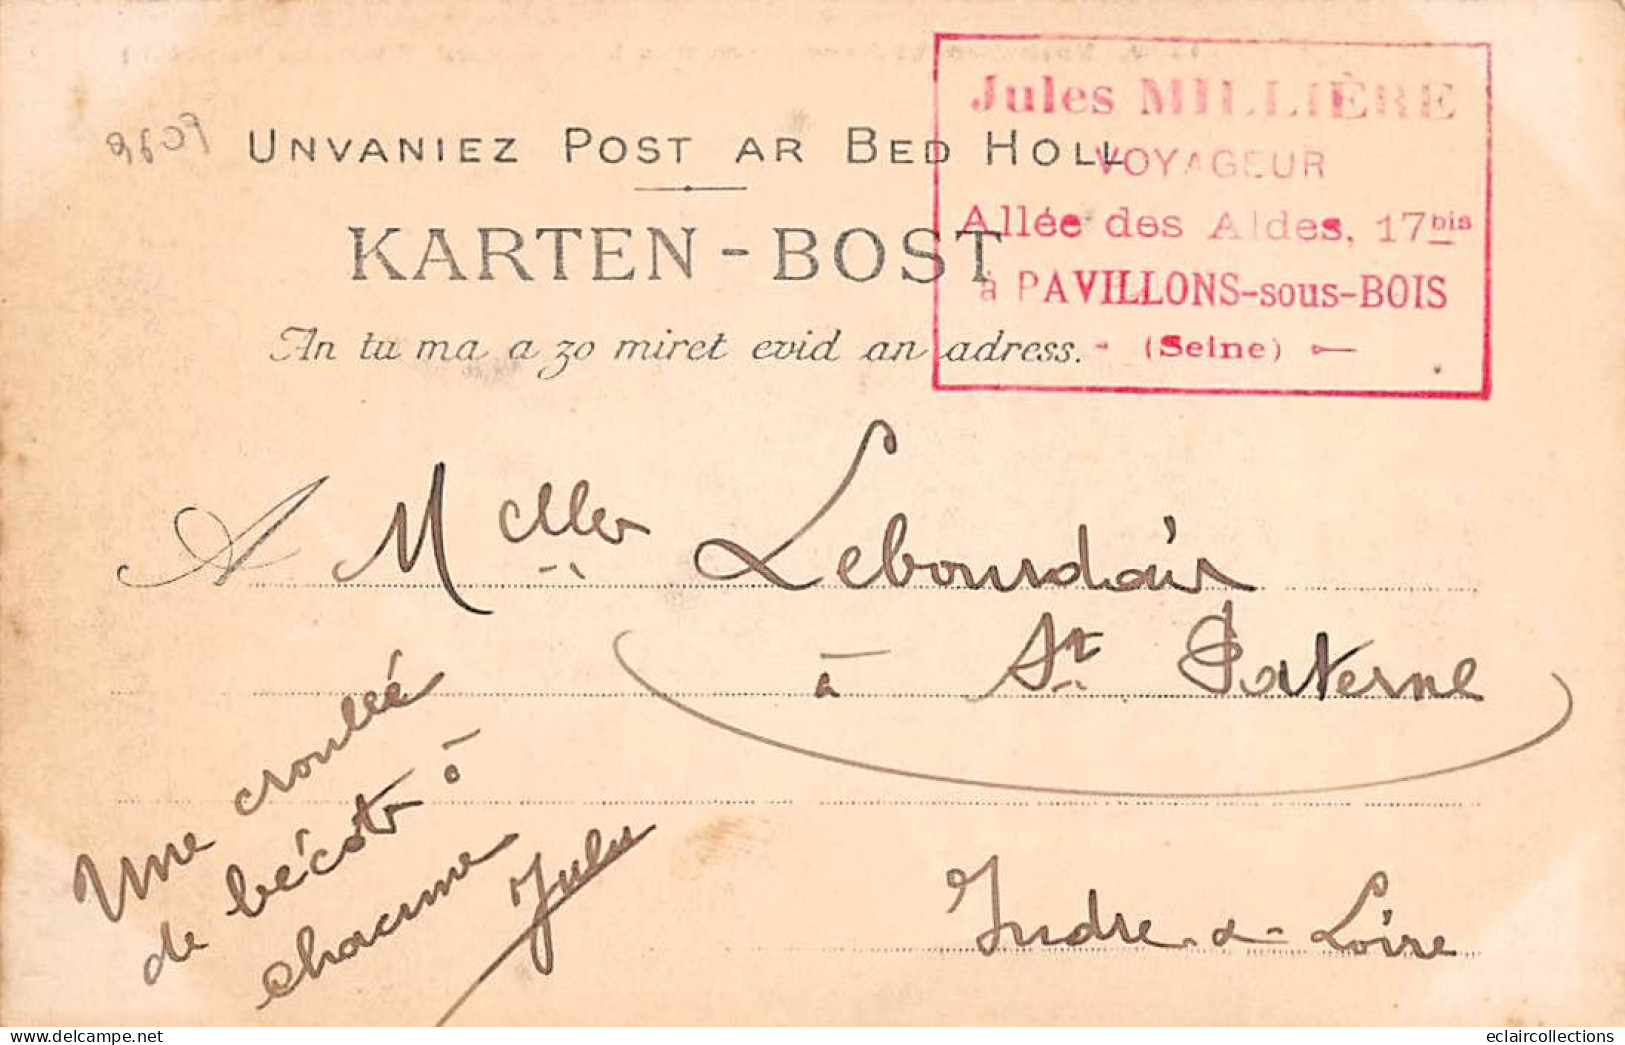 UNVANIEZ POST AR BED HOLL
KARTEN-BOST
An tu ma a zo miret evid an adress.
Jules MILLIÈRE
VOYAGEUR
Allée des Aldes, 17 bis
à PAVILLONS-sous-BOIS
(Seine)
A Melles Lebourdais
à St Paterne
Indre-&-Loire
Une
de bécots à
chacune
Jules
eclaircollections